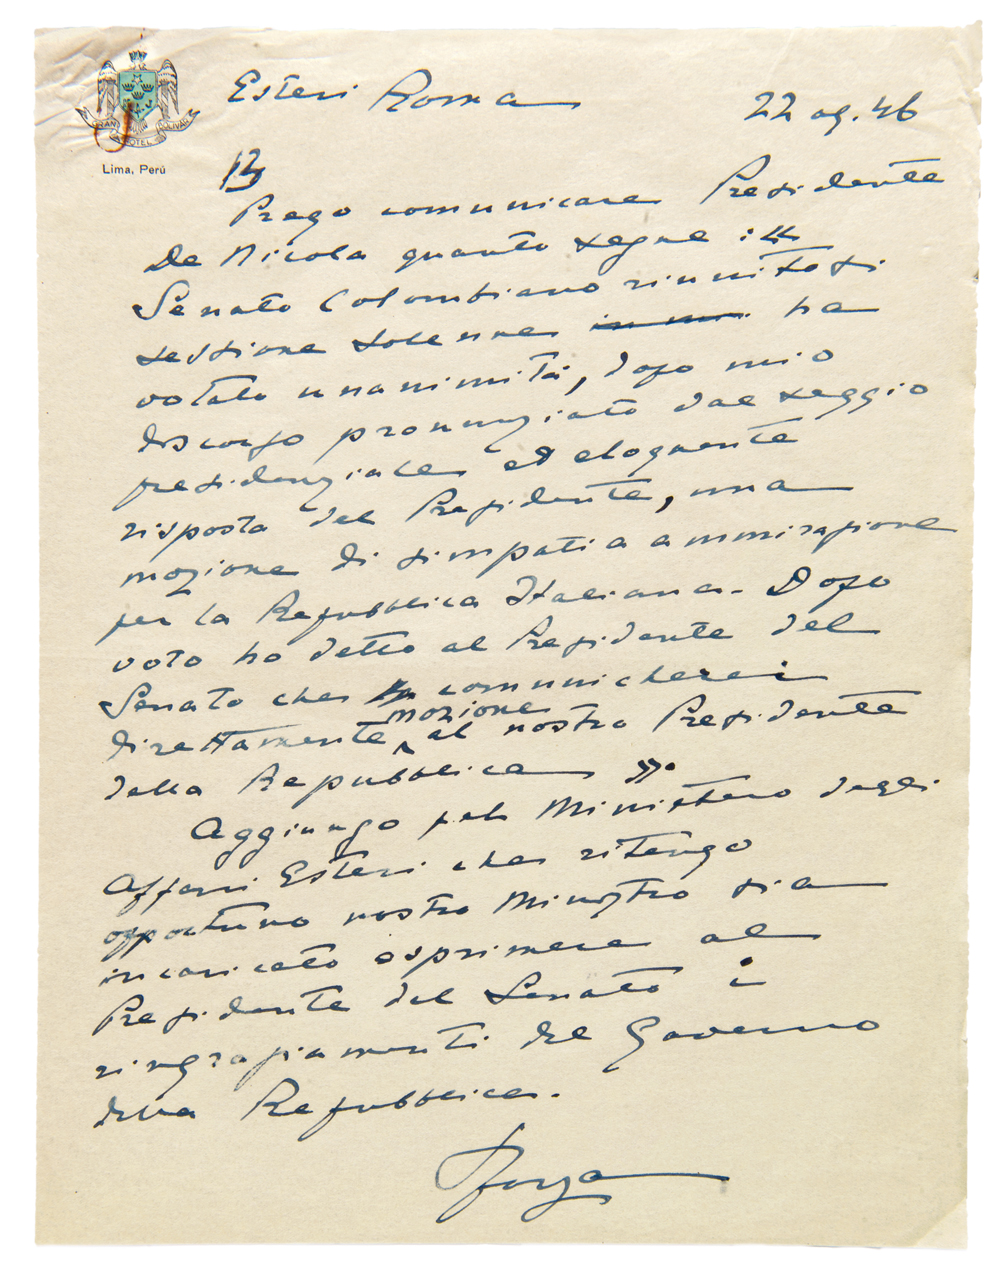 GRAN HOTEL BOLIVAR
Lima, Perú
Esteri Roma
22 ag. 46
13
Prego comunicare Presidente
De Nicola quanto segue : «
Senato Colombiano riunitosi
sessione solenne ha
votato unanimità, dopo mio
discorso pronunziato dal seggio
presidenziale ed eloquente
risposta del Presidente, una
mozione di simpatia ammirazione
per la Repubblica Italiana. Dopo
voto ho detto al Presidente del
Senato che comunicherei
direttamente mozione al nostro Presidente
della Repubblica ».
Aggiungo pel Ministero degli
Affari Esteri che ritengo
opportuno nostro Ministro sia
incaricato esprimere al
Presidente del Senato i
ringraziamenti del Governo
della Repubblica.
Sforza